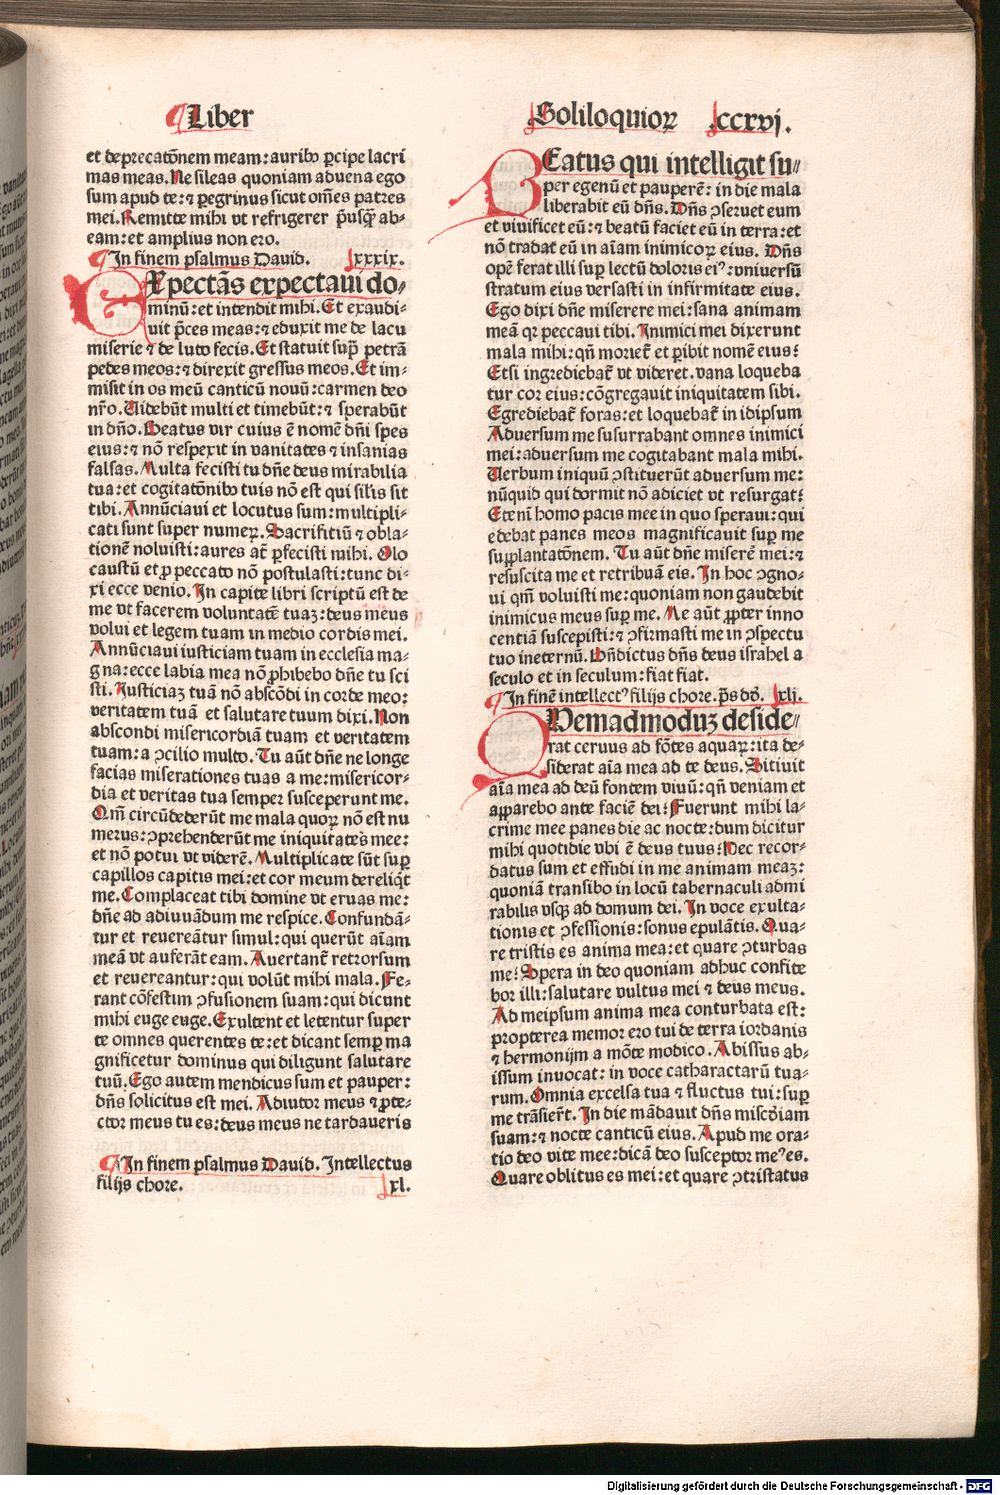 Liber
Soliloquioꝝ
ccxvj.
et deprecatōnem meam: auribꝰ ꝑcipe lacri
mas meas. Ne sileas quoniam aduena ego
sum apud te: ⁊ ꝑegrinus sicut om̄es patres
mei. Remitte mihi vt refrigerer p̄usqꝫ ab-
eam: et amplius non ero.
In finem psalmus Dauid. xxxix.
EXpectās expectaui do-
minū: et intendit mihi. Et exaudi-
uit p̄ces meas: ⁊ eduxit me de lacu
miserie ⁊ de luto fecis. Et statuit sup̄ petrā
pedes meos: ⁊ direxit gressus meos. Et im-
misit in os meū canticū nouū: carmen deo
nr̄o. Uidebūt multi et timebūt: ⁊ sperabūt
in dn̄o. Beatus vir cuius ē nomē dn̄i spes
eius: ⁊ nō respexit in vanitates ⁊ insanias
falsas. Multa fecisti tu dn̄e deus mirabilia
tua: et cogitatōnibꝰ tuis nō est qui sil̄is sit
tibi. Annūciaui et locutus sum: multipli-
cati sunt super numeꝝ. Sacrifitiū ⁊ obla-
tionē noluisti: aures at̄ ꝑfecisti mihi. Olo
caustū et ꝓ peccato nō postulasti: tunc di-
xi ecce venio. In capite libri scriptū est de
me vt facerem voluntatē tuaꝫ: deus meus
volui et legem tuam in medio cordis mei.
Annūciaui iusticiam tuam in ecclesia ma-
gna: ecce labia mea nō ꝓhibebo dn̄e tu sci
sti. Iusticiaꝫ tuā nō abscōdi in corde meo:
veritatem tuā et salutare tuum dixi. Non
abscondi misericordiā tuam et veritatem
tuam: a ꝯcilio multo. Tu aūt dn̄e ne longe
facias miserationes tuas a me: misericor-
dia et veritas tua semper susceperunt me.
Qm̄ circūdederūt me mala quoꝝ nō est nu
merus: ꝯprehenderūt me iniquitates mee:
et nō potui vt viderē. Multiplicate sūt suꝑ
capillos capitis mei: et cor meum dereliq̄t
me. Complaceat tibi domine vt eruas me:
dn̄e ad adiuuādum me respice. Confundā-
tur et reuereātur simul: qui querūt aīam
meā vt auferāt eam. Auertant̄ retrorsum
et reuereantur: qui volūt mihi mala. Fe-
rant cōfestim ꝯfusionem suam: qui dicunt
mihi euge euge. Exultent et letentur super
te omnes querentes te: et dicant semꝑ ma
gnificetur dominus qui diligunt salutare
tuū. Ego autem mendicus sum et pauper:
dn̄s solicitus est mei. Adiutor meus ⁊ ꝓte-
ctor meus tu es: deus meus ne tardaueris
In finem psalmus Dauid. Intellectus
filijs chore. xl.
BEatus qui intelligit su-
per egenū et pauperē: in die mala
liberabit eū dn̄s. Dn̄s ꝯseruet eum
et viuificet eū: ⁊ beatū faciet eū in terra: et
nō tradat eū in aīam inimicoꝝ eius. Dn̄s
opē ferat illi suꝑ lectū doloris eiꝰ: vniuersū
stratum eius versasti in infirmitate eius.
Ego dixi dn̄e miserere mei: sana animam
meā qꝛ peccaui tibi. Inimici mei dixerunt
mala mihi: qn̄ moriet̄ et ꝑibit nomē eius?
Etsi ingrediebat̄ vt videret. vana loqueba
tur cor eius: cōgregauit iniquitatem sibi.
Egrediebat̄ foras: et loquebat̄ in idipsum
Aduersum me susurrabant omnes inimici
mei: aduersum me cogitabant mala mihi.
Uerbum iniquū ꝯstituerūt aduersum me:
nūquid qui dormit nō adiciet vt resurgat?
Etenī homo pacis mee in quo speraui: qui
edebat panes meos magnificauit suꝑ me
supplantatōnem. Tu aūt dn̄e miserē mei: ⁊
resuscita me et retribuā eis. In hoc ꝯgno-
ui qm̄ voluisti me: quoniam non gaudebit
inimicus meus suꝑ me. Me aūt ꝓpter inno
centiā suscepisti: ⁊ ꝯfirmasti me in ꝯspectu
tuo in eternū. Bn̄dictus dn̄s deus israhel a
seculo et in seculum: fiat fiat.
In finē intellectꝰ filijs chore. p̄s dd̄. xli.
QUemadmoduꝫ deside-
rat ceruus ad fōtes aquaꝝ: ita de-
siderat aīa mea ad te deus. Sitiuit
aīa mea ad deū fontem viuū: qn̄ veniam et
apparebo ante faciē dei? Fuerunt mihi la-
crime mee panes die ac nocte: dum dicitur
mihi quotidie vbi ē deus tuus? Hec recor-
datus sum et effudi in me animam meaꝫ:
quoniā transibo in locū tabernaculi admi
rabilis vsqꝫ ad domum dei. In voce exulta-
tionis et ꝯfessionis: sonus epulātis. Qua-
re tristis es anima mea: et quare ꝯturbas
me? Spera in deo quoniam adhuc confite
bor illi: salutare vultus mei ⁊ deus meus.
Ad meipsum anima mea conturbata est:
propterea memor ero tui de terra iordanis
⁊ hermonijm a mōte modico. Abissus ab-
issum inuocat: in voce catharactarū tua-
rum. Omnia excelsa tua ⁊ fluctus tui: suꝑ
me trāsier̄t. In die mādauit dn̄s misc̄diam
suam: ⁊ nocte canticū eius. Apud me ora-
tio deo vite mee: dicā deo susceptor meꝰ es.
Quare oblitus es mei: et quare ꝯtristatus
Digitalisierung gefördert durch die Deutsche Forschungsgemeinschaft - DFG